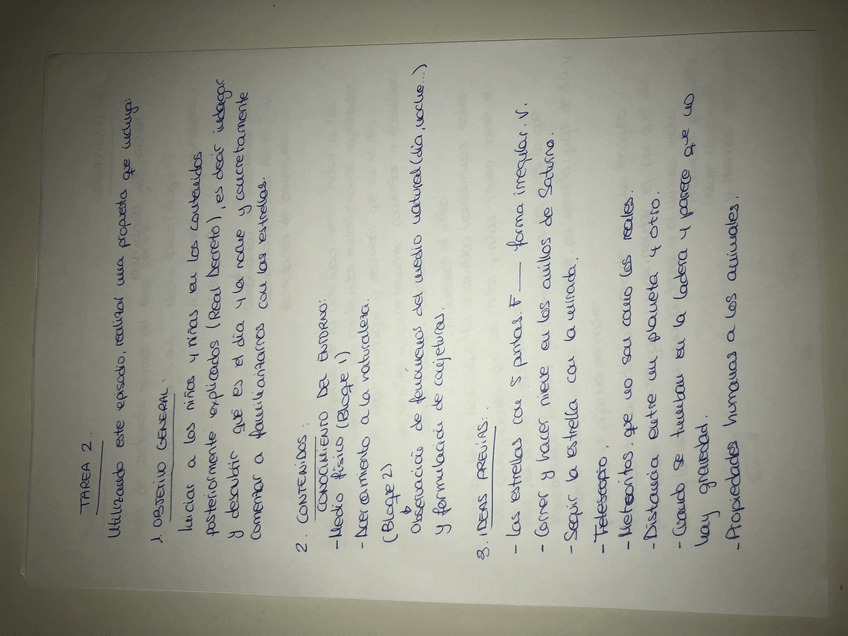 TAREA 2.
Utilizando este episodio, realizar una propuesta que incluya:
1. OBJETIVO GENERAL.
Iniciar a los niños y niñas en los contenidos
posteriormente explicados (Real Decreto), es decir indagar
y descubrir qué es el día y la noche y concretamente
comenzar a familiarizarnos con las estrellas.
2. CONTENIDOS:
CONOCIMIENTO DEL ENTORNO:
- Medio físico (Bloque 1)
- Acercamiento a la naturaleza.
(Bloque 2)
Observación de fenómenos del medio natural (día, noche...)
y formulación de conjeturas.
3. IDEAS PREVIAS:
- Las estrellas con 5 puntas. F — forma irregular. V.
- Correr y hacer nieve en los anillos de Saturno.
- Seguir la estrella con la mirada.
- Telescopio.
- Meteoritos que no son como los reales.
- Distancia entre un planeta y otro.
- Cuando se tumban en la ladera y parece que no
hay gravedad.
- Propiedades humanas a los animales.